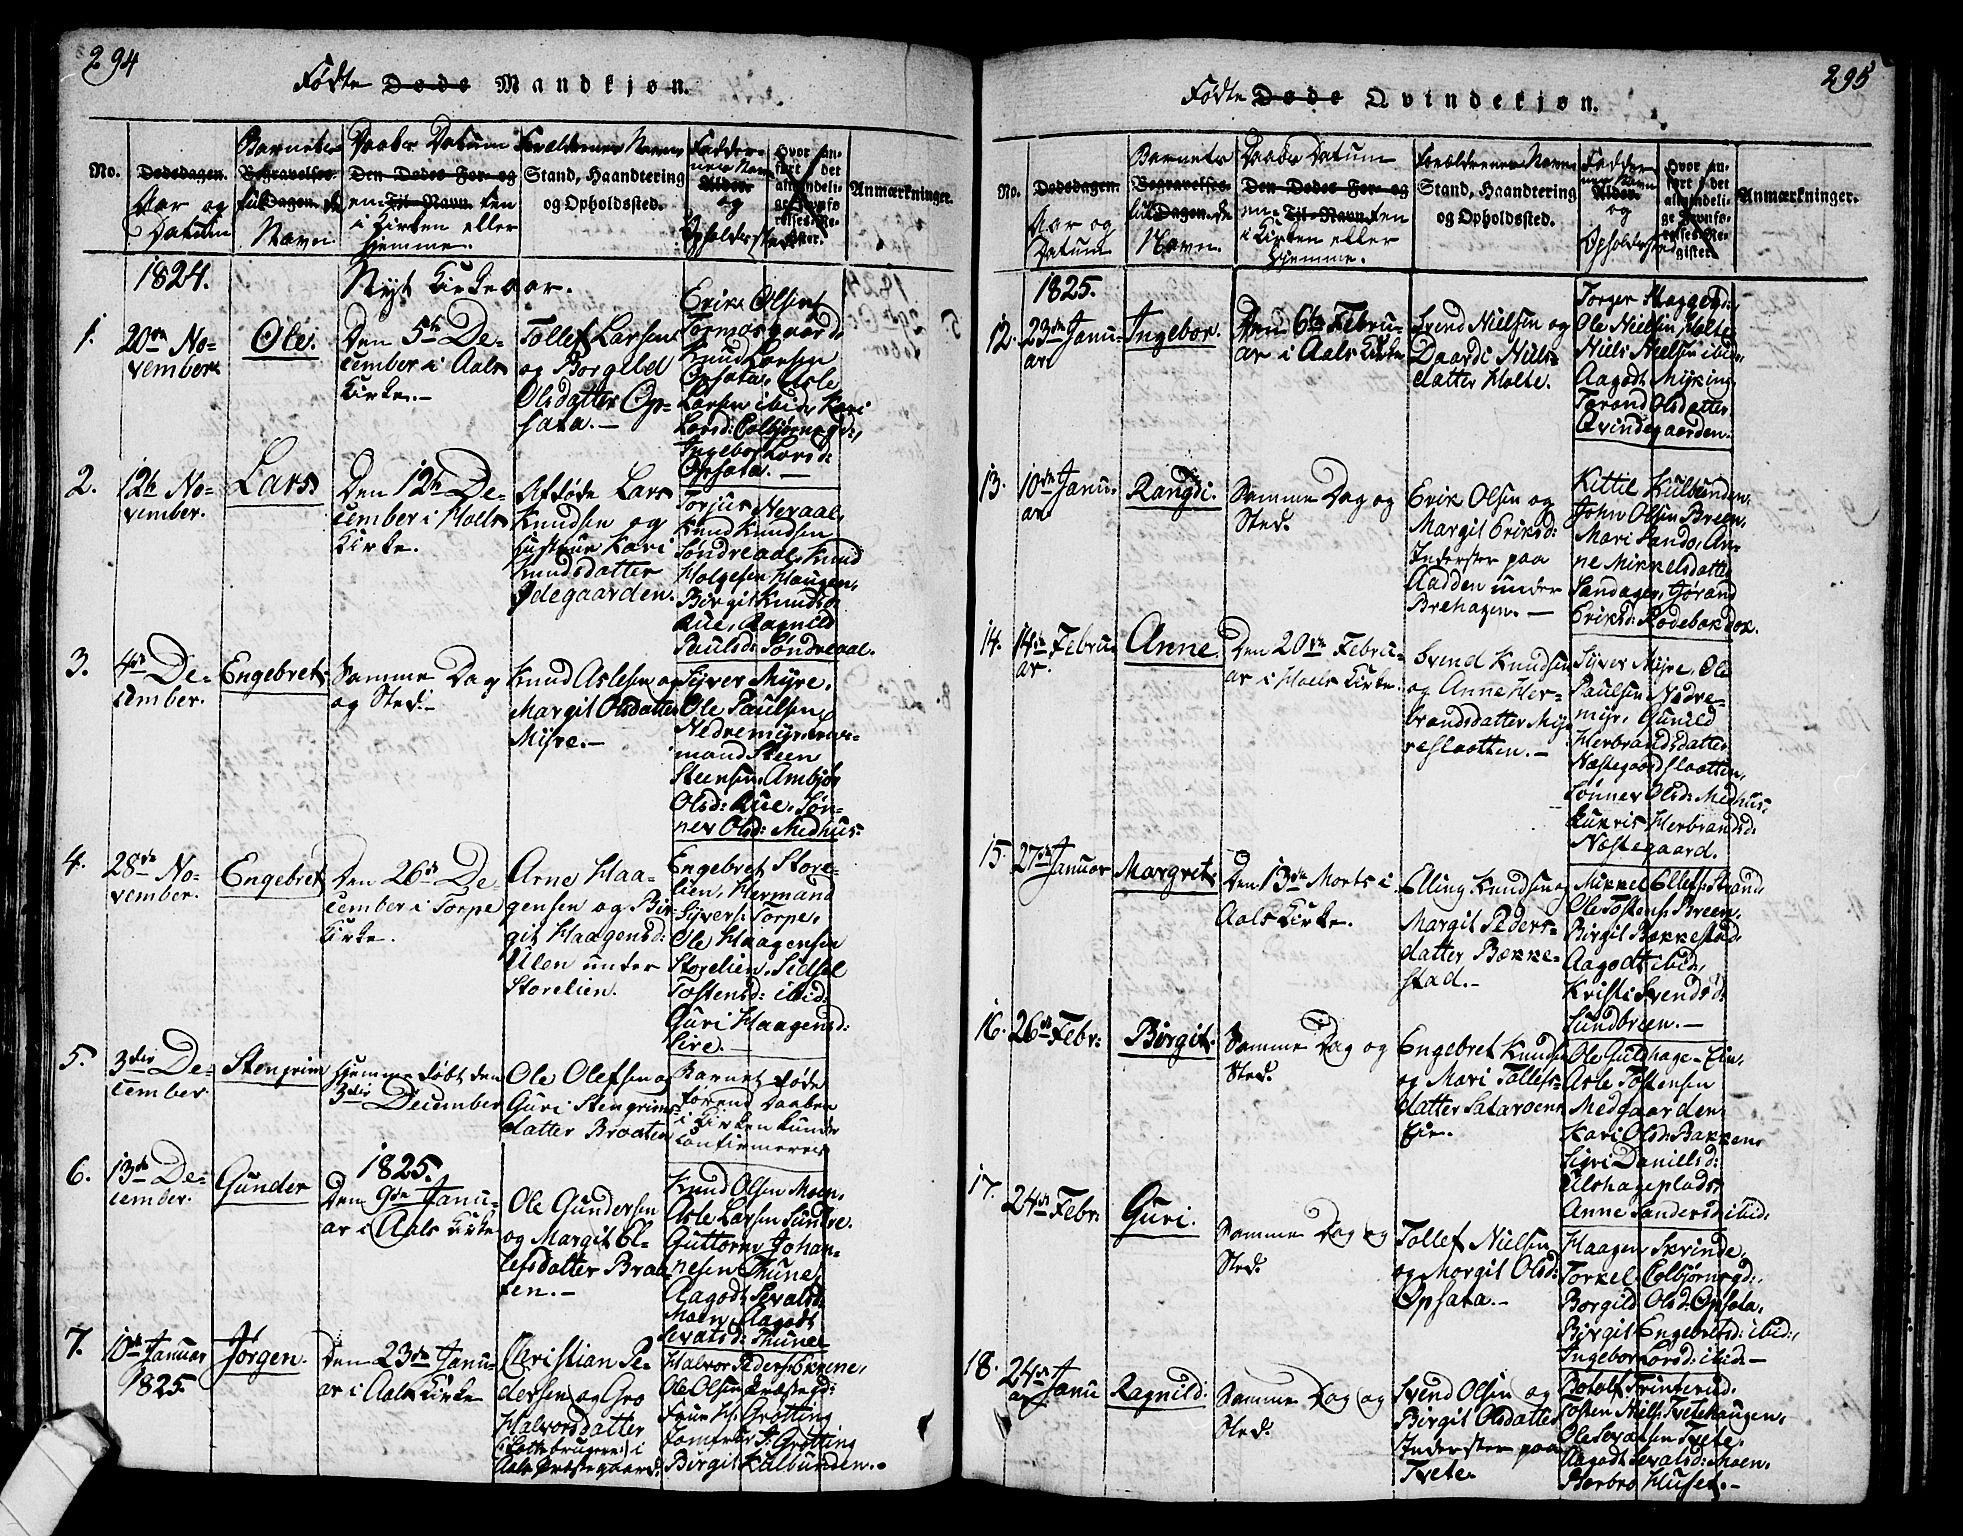 294
Fødte Døde Mandkjøn.
No.
Dødsdagen.
Aar og
Datum
Barnets
Begravelses
fulde Dagen.
Navn
Daabs Datum
Den Dødes For og
en Til-Navn ten
i Kirken eller
hjemme.
Forældrenes Navne
Stand, Haandtering
og Opholdssted.
Faddernes Navn
Alder
og
Opholdssted
Hvor anført i det almindelige Jevnførelses-Register.
Anmærkninger.
1824.
Nyt Kirkeaar.
1.
20de November
Ole.
Den 5te December i Aals
Kirke.-
Tollef Larsen
og Borgild
Olsdatter Opsata.-
Erik Olsen
Tormosgaard
Knud Larsen
Opsata, Asle
Larsen ibid, Kari
Larsd: Colbjørnsgd:,
Ingebor Larsd:
Opsata.-
2.
12te November.
Lars
Den 12te December i Hols
Kirke.
Afdøde Lars
Knudsen og
Hustrue Kari
Knudsdatter
Ødegaarden.
Torjus Neraal,
Knud Knudsen
Søndreaal, Knud
Holgesen Haugen,
Birgit Knudsd
Rue, Ragnild
Paulsd: Søndreaal.
3.
4de December.
Engebret
Samme Dag
og Sted.
Knud Aslesen og
Margit Olsdatter
Myre.-
Syver Myre,
Ole Paulsen
Nedremyr,
Steen
Steensen, Ambjør
Olsd: Rue, Sønnev Olsd: Medhus.
4.
28de November.
Engebret
Den 26de December i Torpe
Kirke.
Arne Haagensen og Birgit Haagensd:
Ulen under
Storelien.
Engebret Storelien, Hermand
Syvers: Torpe,
Ole Haagensen
Storelien, Sidsel
Tostensd: ibid:
Guri Haagensd:
Lire.
5.
3die December
Stengrim
Hjemmedøbt den
3die December
Ole Olefsen og
Guri Stengrimsdatter Braaten
Barnet døde
forend Daaben
i Kirken kunde
confirmeres
6.
13de December.
Gunder
1825.
Den 9de Januar i Aals Kirke
Ole Gundersen
og Margit Ellefsdatter Braaten.-
Knud Olsen Moen,
Asle Larsen Sundre,
Guttorm Johannesen Thune,
Aagodt Sevatsd:
Moen, Aagodt
Sevatsd: Thune
7.
10de Januar
1825.
Jørgen.
Den 23de Januar i Aals Kirke
Christian Pedersen og Gro
Halvorsdatter
i
Aals Præstegaard.
Halvor Peders: Exene,
Ole Olsen Præstegd:
Frue H: Grøtting
Jomfrue S: Grøtting
Birgit Kulbunden.
295
Fødte Døde Qvindekjøn.
No.
Dødsdagen.
Aar og
Datum
Barnets
Begravelses
fulde Dagen.
Navn.
Daabs Datum
Den Dødes For og
en Til-Navn ten
i Kirken eller
Hjemme.
Forældrenes Navne
Stand, Haandtering
og Opholdssted.
Faddernes Navn
Alder
og
Opholdssted
Hvor anført i det almindelige Jevnførelses-Register.
Anmærkninger.
1825.
12.
23de Januar
Ingebor.
Den 6te Februar i Aals Kirke
Svend Nielsen og
Daardi Nielsdatter Holte.
Torger Haggod:,
Ole Nielsen Holte
Niels Nielsen ibid,
Aagodt Myking,
Tarand Olsdatter
Qvindegaarden.
13.
10de Januar
Rangdi.
Samme Dag og
Sted.
Erik Olsen og
Margit Eriksd:
Inderster paa
Aadden under
Brehagen.-
Kittil Kulbunden,
John Olsen Breen,
Mari Sando, Anne Mikkelsdatter
Sandager, Jørand
Eriksd: Rodebakdok.
14.
14de Februar.
Anne
Den 20de Februar i Hols Kirke.
Svend Knudsen
og Anne Herbrandsdatter Myreslaatten.-
Syver Myre, Ole
Paulsen Nedremyr, Gunild
Herbrandsdatter
Næstegaardslaatten,
Sønnev Olsd: Medhus,
Herbrandsd:
Næstegaard.
15.
27de Januar
Margret
Den 13de Marts i
Aals Kirke.
Elling Knudsen og
Margit Pedersdatter Bækkestad.-
Mikkel Ellefs: Strand,
Ole Tostens: Breen,
Birgit Bækkestad,
Aagodt ibid,
Kristi Svendsd:
Sundbreen.-
16.
26de Febr:
Birgit.
Samme Dag og
Sted.
Engebret Knudsen
og Mari Tollefsdatter Sataroens
Eie.
Ole Gulshage-Eie,
Asle Tostensen
Medgaarden,
Kari Olsd: Bakken,
Siri Danielsd:
Ulshageplads,
Anne Sandersd: ibid:
17.
24de Febr.
Guri.
Samme Dag og
Sted.
Tollef Nielsen
og Margit Olsd:
Opsata.-
Haagen Skrinde,
Torkel Colbjørnsgd:,
Borgild Olsd: Opsata,
Birgit Engebretsd: ibid:,
Ingebor Larsd: ibid.-
18.
24de Januar
Ragnild.
Samme Dag og
Sted.
Svend Olsen og
Birgit Olsdatter
Inderster paa
Tvete.
Botolf Trinterud,
Tosten Niels: Tvetehaugen,
Ole Sevatsen Tvete,
Aagodt Sevatsd: Moen,
Barbro Huset.-